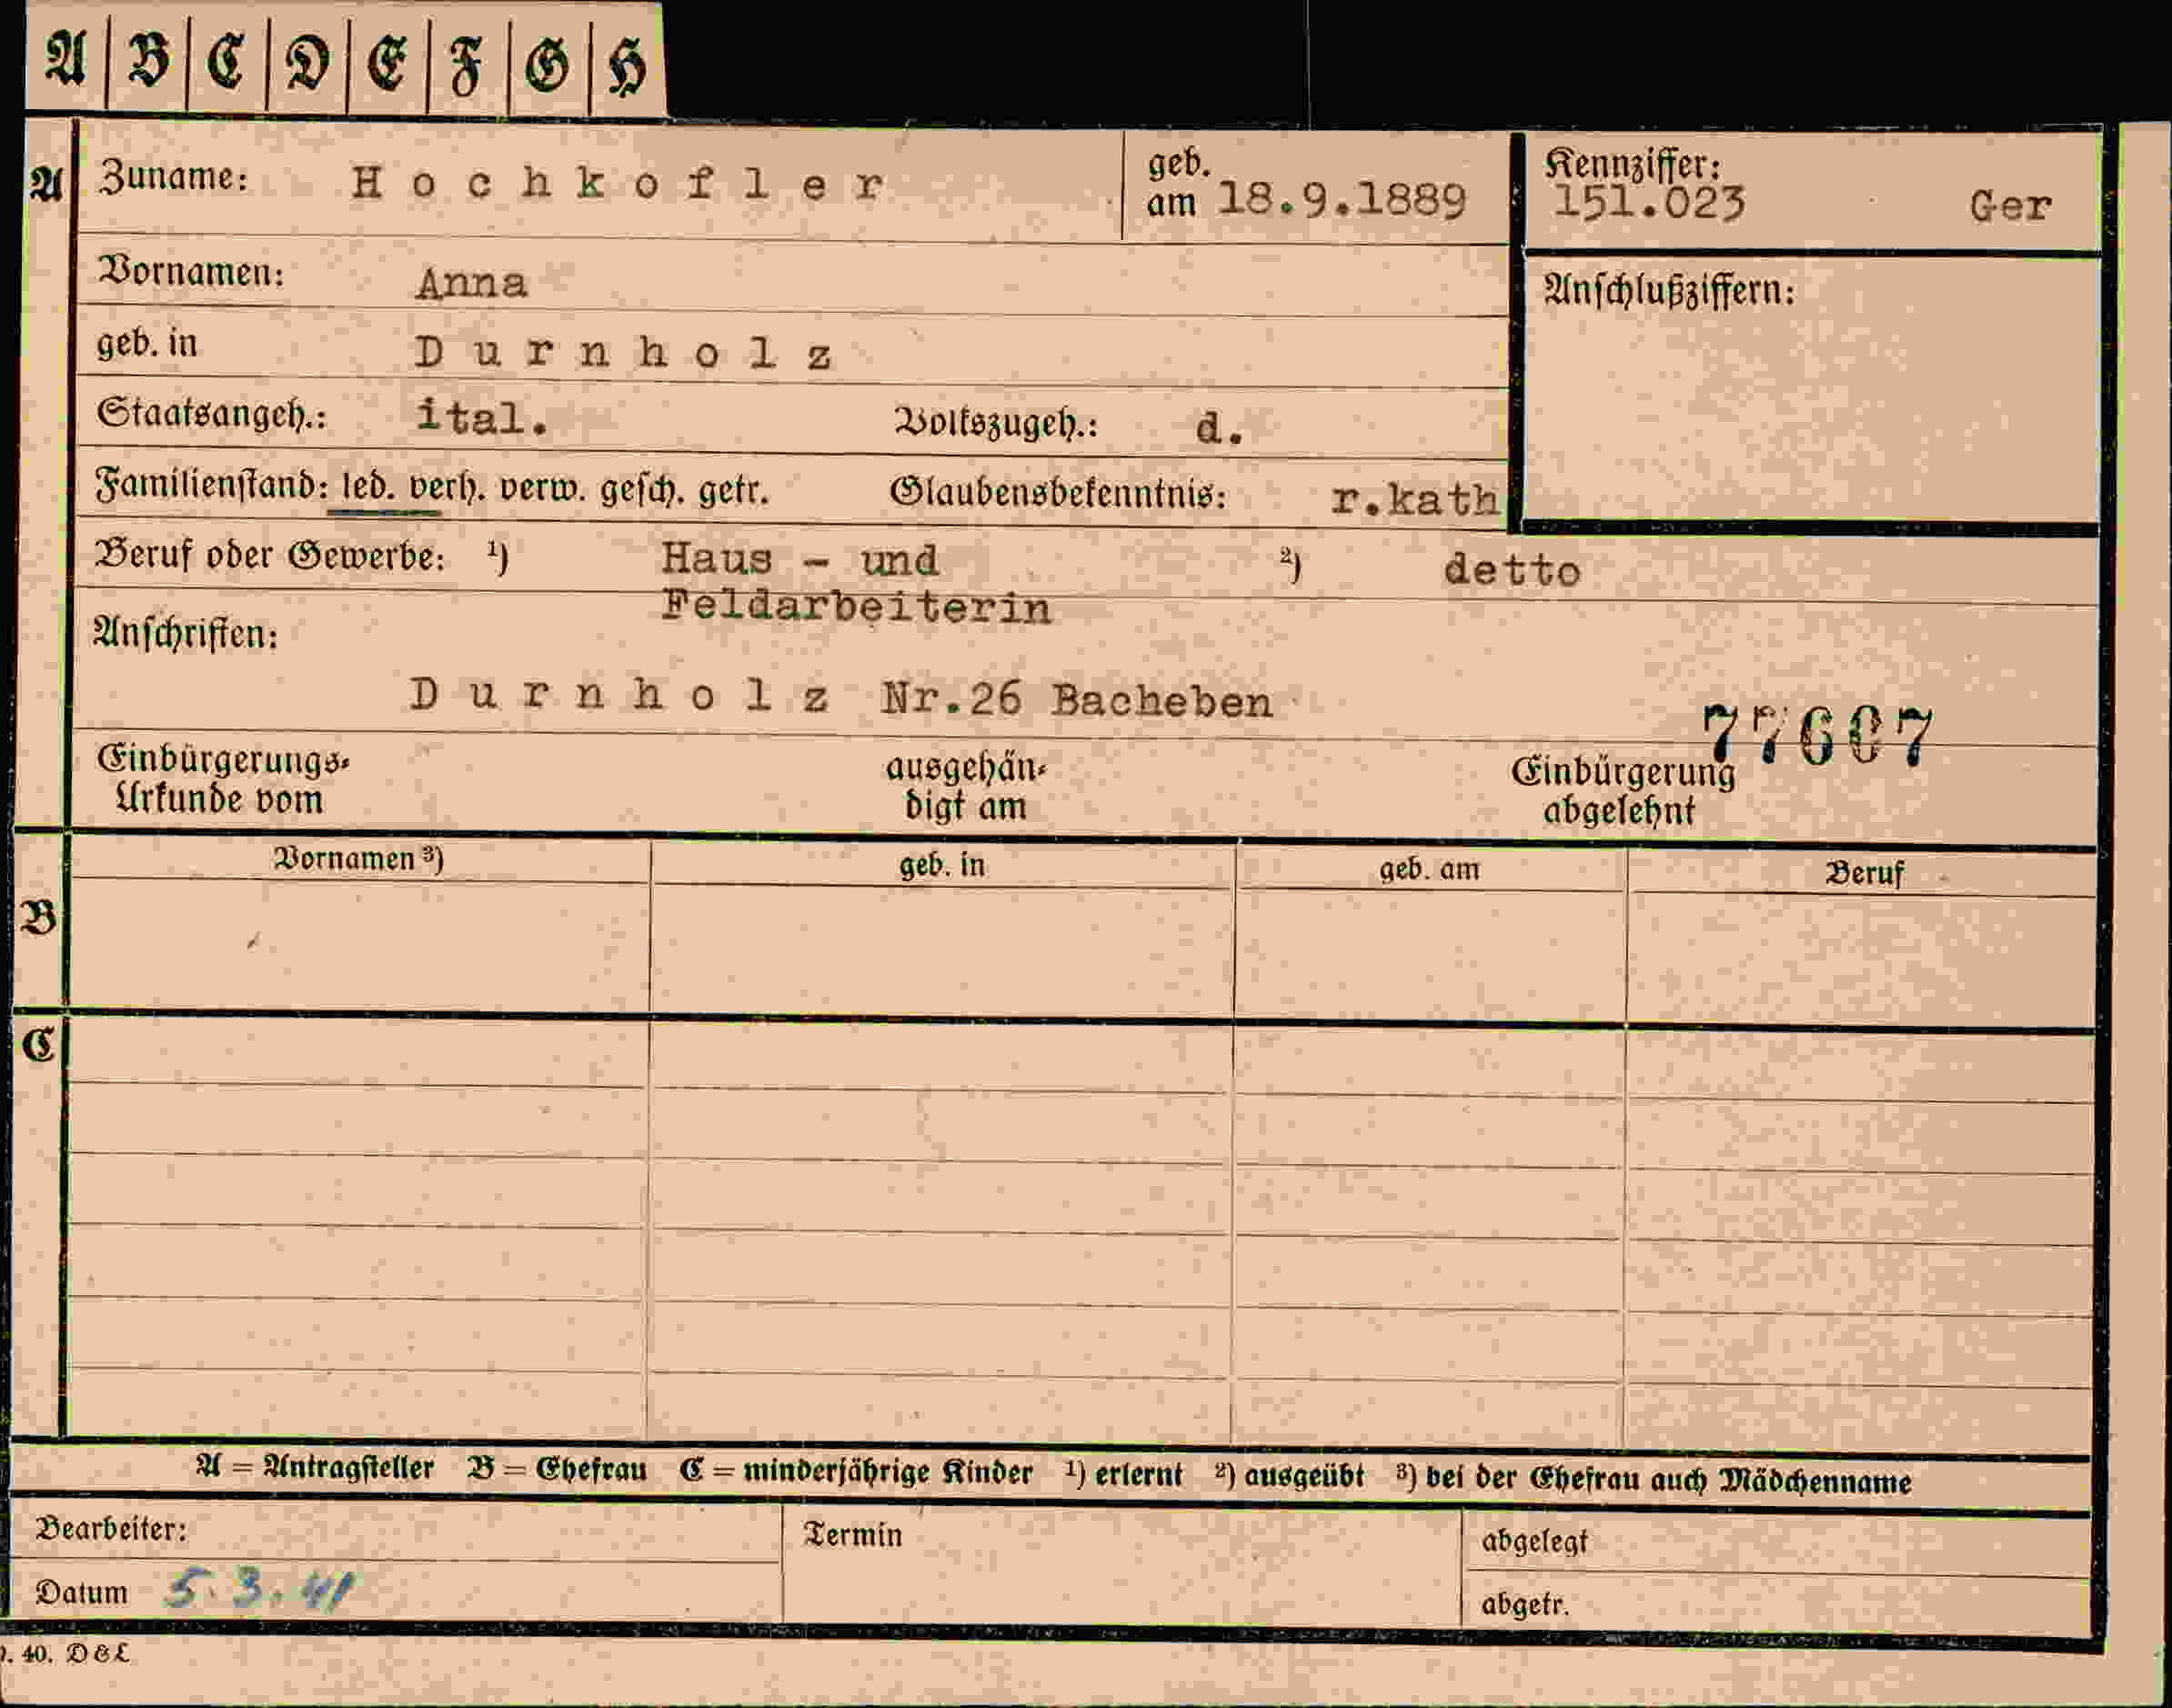 A B C D E F G H
A Zuname: Hochkofler geb. am 18.9.1889 Kennziffer: 151.023 Ger
Vornamen: Anna Anschlußziffern:
geb. in Durnholz
Staatsangeh.: ital. Volkszugeh.: d.
Familienstand: led. verh. verw. gesch. getr. Glaubensbekenntnis: r.kath
Beruf oder Gewerbe: ¹) Haus - und ²) detto
Feldarbeiterin
Anschriften:
Durnholz Nr.26 Bacheben
77607
Einbürgerungs- ausgehän- Einbürgerung
Urkunde vom digt am abgelehnt
Vornamen ³) geb. in geb. am Beruf
B
C
A = Antragsteller B = Ehefrau C = minderjährige Kinder ¹) erlernt ²) ausgeübt ³) bei der Ehefrau auch Mädchenname
Bearbeiter: Termin abgelegt
Datum 5.3.41 abgetr.
40. D & L